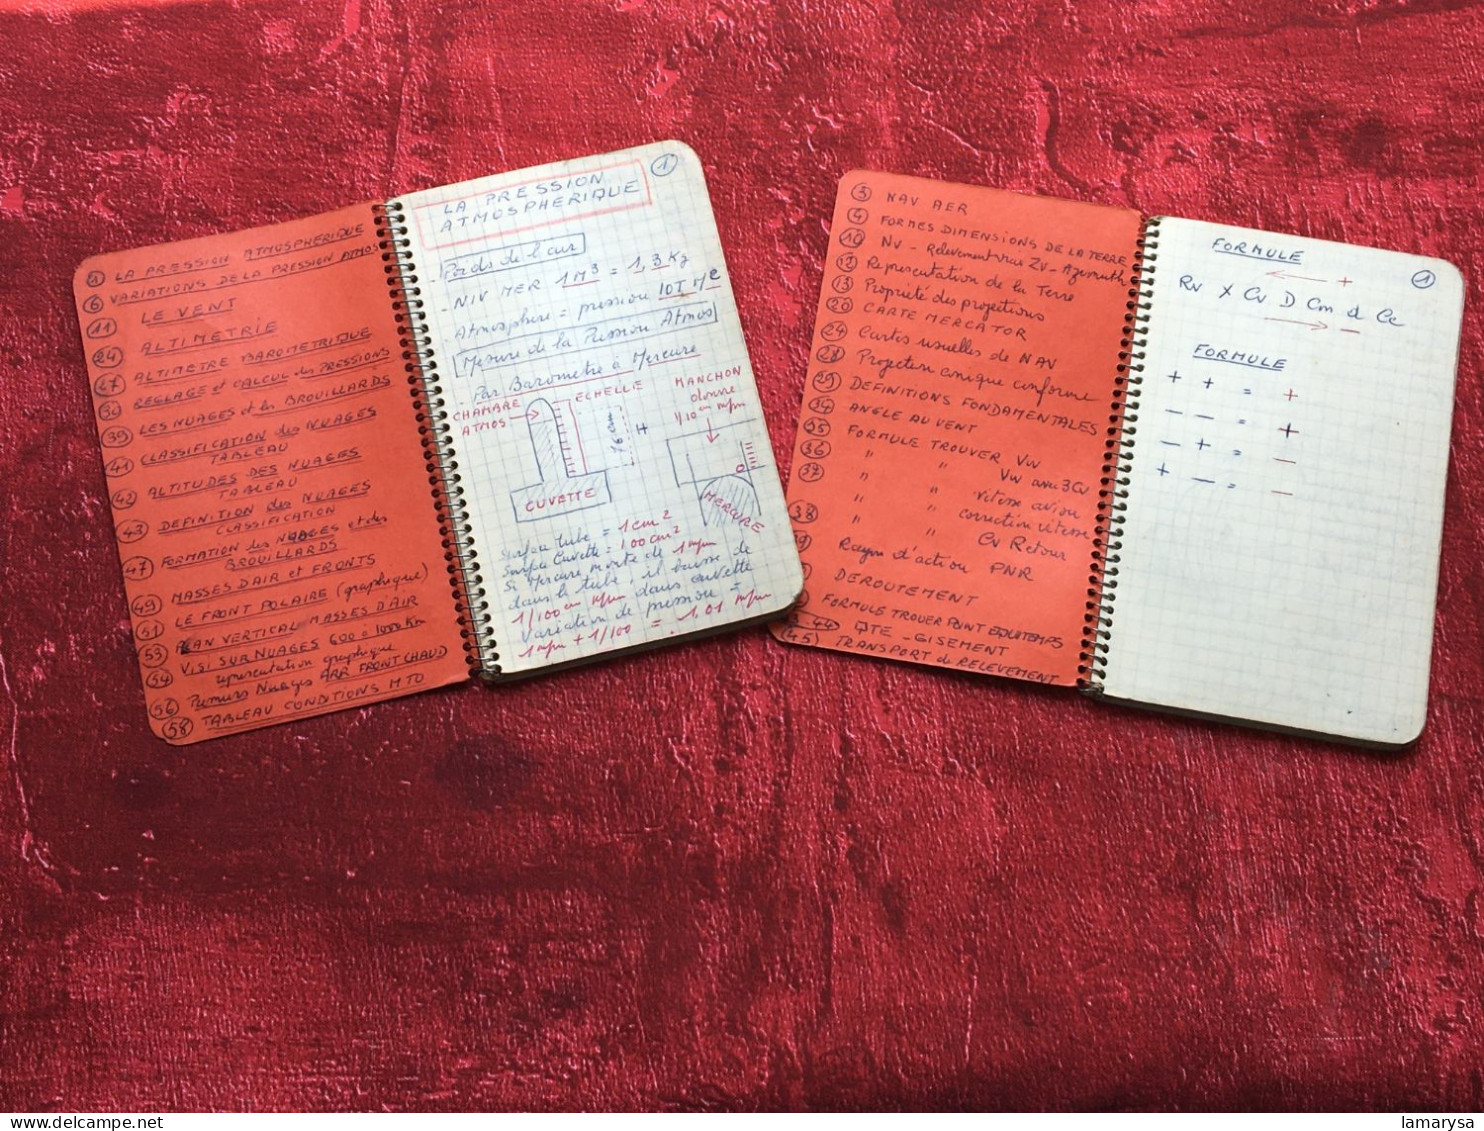 1 LA PRESSION ATMOSPHERIQUE
6 VARIATIONS DE LA PRESSION ATMOS
11 LE VENT
24 ALTIMETRIE
27 ALTIMETRE BAROMETRIQUE
30 REGLAGE et CALCUL des PRESSIONS
39 LES NUAGES et les BROUILLARDS
41 CLASSIFICATION des NUAGES
TABLEAU
42 ALTITUDES DES NUAGES
TABLEAU
43 DEFINITION des NUAGES
CLASSIFICATION
47 FORMATION des NUAGES et des
BROUILLARDS
49 MASSES D'AIR et FRONTS
51 LE FRONT POLAIRE (graphique)
53 PLAN VERTICAL MASSES D'AIR
54 VISI SUR NUAGES 600 à 1000 Km
représentation graphique
56 Premiers Nuages ARR FRONT CHAUD
58 TABLEAU CONDITIONS MTO
1
LA PRESSION
ATMOSPHERIQUE
Poids de l'air
- NIV MER 1M³ = 1,3 Kg
Atmosphère = pression 10T M²
Mesure de la Pression Atmos
Par Baromètre à Mercure
CHAMBRE
ATMOS
ECHELLE
76 cm
H
MANCHON
donne
1/10 em m/m
CUVETTE
MERCURE
0
Surface tube = 1 cm²
Surface Cuvette = 100 cm²
Si Mercure monte de 1 m/m
dans le tube, il baisse de
1/100 em m/m dans cuvette
Variation de pression =
1 m/m + 1/100 = 1,01 m/m
3 NAV AER
4 FORMES DIMENSIONS DE LA TERRE
10 Nv - Relevement vrai Zv - Azimuth
12 Représentation de la Terre
13 Propriété des projections
20 CARTE MERCATOR
24 Cartes usuelles de NAV
28 Projection conique conforme
29 DEFINITIONS FONDAMENTALES
34 ANGLE AU VENT
35 FORMULE TROUVER Vw
36 " " Vw avec 3 Cv
37 " " vitesse avion
" " correction vitesse
38 " " Cv Retour
39 Rayon d'action PNR
DEROUTEMENT
FORMULE TROUVER POINT EQUITEMPS
44 QTE - GISEMENT
(45) TRANSPORT de RELEVEMENT
1
FORMULE
← +
Rv X Cv D Cm d Cc
→ -
FORMULE
+ + = +
- - = +
- + = -
+ - = -
lamarysa